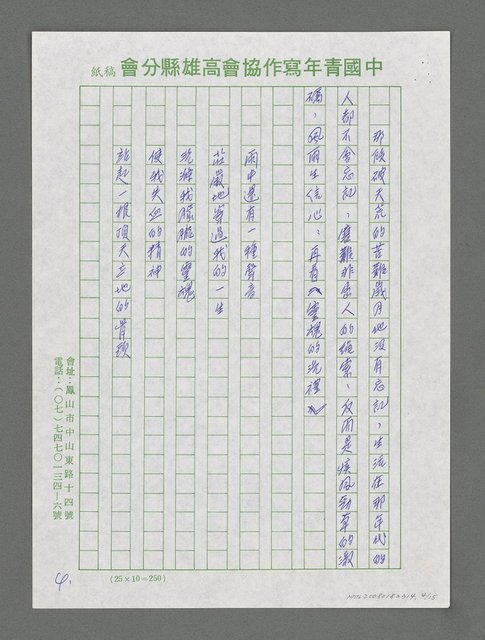 中國青年寫作協會高雄縣分會 稿紙
那段破天荒的苦難歲月他沒有忘記，生活在那年代的
人都不會忘記，磨難非愚人的繩索，反而是疾風勁草的激
礪，風雨生信心：再看靈魂的洗禮
雨中還有一種聲音
莊嚴地穿過我的一生
洗滌我朦朧的靈魂
使我失血的精神
站起一根頂天立地的脊樑
會址：鳳山市中山東路十四號
電話：（〇七）七四七〇一三四—六號
(25×10=250)
4.